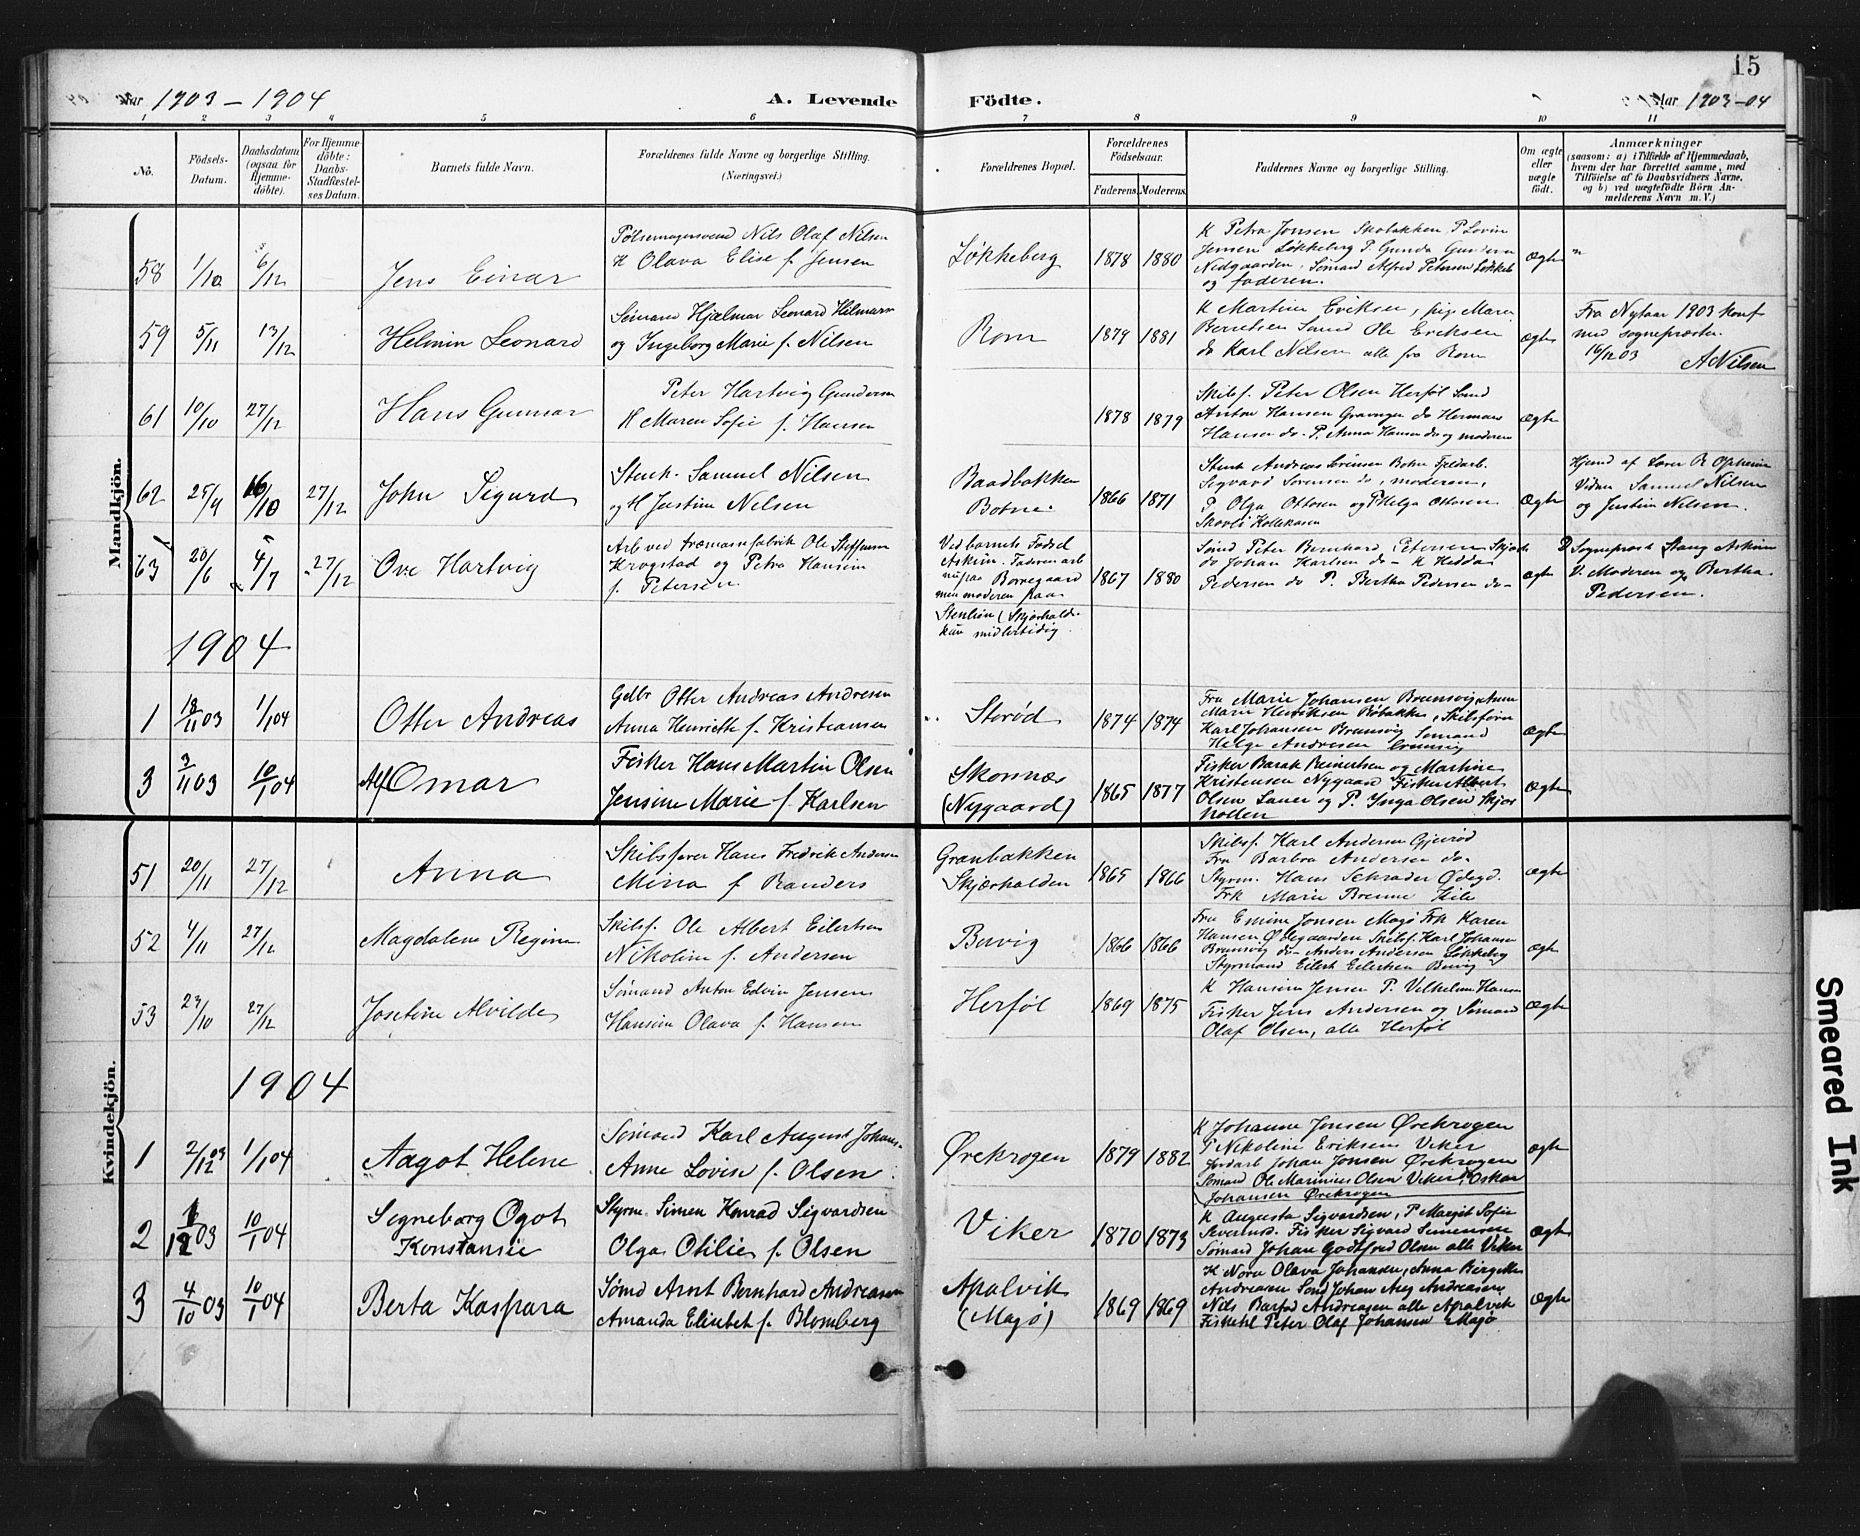 15
Aar 1903 - 1904
A. Levende
Födte.
Aar 1903-04
1 2 3 4 5 6 7 8 9 10 11
No.
Födsels-
Datum.
Daabsdatum
(ogsaa for
Hjemme-
döbte).
For Hjemme-
döbte:
Daabs-
Stadfestel-
ses Datum.
Barnets fulde Navn.
Forældrenes fulde Navne og borgerlige Stilling.
(Næringsvei.)
Forældrenes Bopæl.
Forældrenes
Födselsaar.
Faderens. Moderens.
Faddernes Navne og borgerlige Stilling.
Om ægte
eller
uægte
födt.
Anmærkninger
(saasom: a) i Tilfælde af Hjemmedaab,
hvem der har forrettet samme, med
Tilföielse af to Daabsvidners Navne,
og b) ved uægtefödte Börn An-
melderens Navn m. V.)
Mandkjön.
58 1/10 6/12 Jens Einar
Pølsemagersvend Nils Olaf Nilsen
K Olava Elise f. Jensen
Løkkeberg 1878 1880
K Petra Jensen Skobakken P. Lovin
Jensen Løkkeberg P. Gunda Gundersen
Nedgaarden. Sømand Alfred Petersen Løkkeb
og faderen.
Ægte "
59 5/11 13/12 Helmin Leonard
Sømand Hjælmar Leonard Hilmarsn
og Ingeborg Marie f. Nilsen
Rom 1879 1881
K Martine Eriksen, pige Maren
Berntsen Sømd Ole Eriksen
do Karl Nilsen alle fra Rom
Ægte
Fra Nytaar 1903 konf
med sogneprester
16/12 03
A Nilsen
61 10/10 27/12 Hans Gunnar
Peter Hartvig Gundersen
K Maren Sofie f. Hansen
1878 1879
Skibsf. Peter Olsen Herføl Sømd
Anton Hansen do Herman
Hansen do. P. Anna Hansen do og moderen
Ægte
62 25/9 16/10 27/12 John Sigurd
Stenh. Samuel Nilsen
og H Justine Nilsen
Baadbakken
Botne. 1866 1871
Stenh Andreas Sørensen Bohn
Sigvard Sørensen do, moderen,
P Olga Ottosen og P Helga Ottosen
Ægte
Hjemd af Lærer R Opheim
Vidner Samuel Nilsen
og Justine Nilsen.
63 20/6 4/7 27/12 Ove Hartvig
Arb ved træmassefabrik Ole Steffensen
Krogstad og Petra Hansine
f. Petersen.
Ved barnets Fødsel
Askim. Faderen arb
nu paa Borregaard
men moderen paa
Stenlien (Skjærhald.
kun midlertidig.
1867 1880
Sømd Peter Bernhard Petersen
do Johan Karlsen do - K Hedda
Pedersen do P. Bertha Pedersen do -
Ægte
D Sogneprest Stang Askim
V. Moderen og Bertha
Pedersen.
1904
1 18/11 03 1/1 04 Otter Andreas
Gdbr Otter Andreas Andresen
Anna Henriette f. Kristiansen
Storød 1874 1874
Fru Marie Johansen Brunsvig, Anna
Marie Henriksen Røbakke, Skibsfører
Karl Johansen Brunsvig Sømand
Helge Andresen
Ægte
3 3/11 03 10/1 04 Alf Omar
Fisker Hans Martin Olsen
Jensine Marie f. Karlsen
Skonnæs
(Nygaard) 1865 1877
Fisker Barak Reinertsen og Martine
Kristensen Nygaard Fisker Albert
Olsen Lauer og P. Inga Olsen Skjær
hollen
Ægte
Kvindekjön.
51 20/11 27/12 Anna
Skibsfører Hans Fredrik Andersen
Mina f Randers
Grønbakken
Skjærhalden 1865 1866
Skibsf. Karl Andersen Gjeirød
Fru Barbra Andersen do.
Styrm. Hans Schrader Ødegd.
Frk Marie Brenne Kile
Ægte
52 4/11 27/12 Magdalene Regine
Skibsf. Ole Albert Eilertsen
Nikoline f. Andersen
Buvig 1866 1866
Fru Emine Jensen Magø Frk Karen
Hansen Ødegaarden Skibsf. Karl Johansen
Brunsvig do - Anders Andersen Løkkeberg
Styrmand Eilert Eilertsen Buvig
Ægte
53 23/10 27/12 Josefine Alvilde
Sømand Anton Edvin Jensen
Hansine Olava f. Hansen
Herføl 1869 1875
K. Hansine Jensen P. Vilhelmine Hansen
Fisker Jens Andersen og Sømand
Olaf Olsen, alle Herføl
Ægte
1904
1 2/12 03 1/1 04 Aagot Helene
Sømand Karl August Johans.
Anne Lovise f. Olsen
Ørekrogen 1879 1882
K Johanne Jensen Ørekrogen
P Nikoline Eriksen Viker
Jordarb Johan Jensen Ørekrogen
Sømand Ole Marinius Olsen Viker, Oskar
Johansen Ørekrogen
Ægte
2 1/12 03 10/1 04 Signeborg Ogot
Konstansie
Styrm Simen Konrad Sigvardsen
Olga Otilie f. Olsen
Viker 1870 1873
K Augusta Sigvardsen, P Margit Sofie
Severinsd. Fisker Sigvard Simensen
Sømand Johan Godtfred Olsen alle Viker
Ægte
3 4/10 03 10/1 04 Berta Kaspara
Sømd Arnt Bernhard Andreasen
Amanda Elisabet f. Blomberg
Apalvik
(Magø) 1869 1869
K Nora Olava Johansen, Anna Birgitte
Andreasen Sømd Johan Aug Andreasen
Nils Barfod Andreasen alle Apalvik
Peter Olaf Johansen Magø
Ægte
Smeared Ink